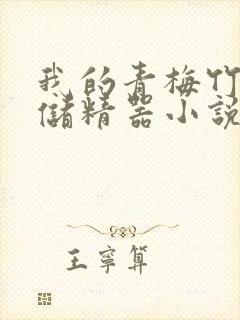 我的青梅竹
儲精器小說
王寧算